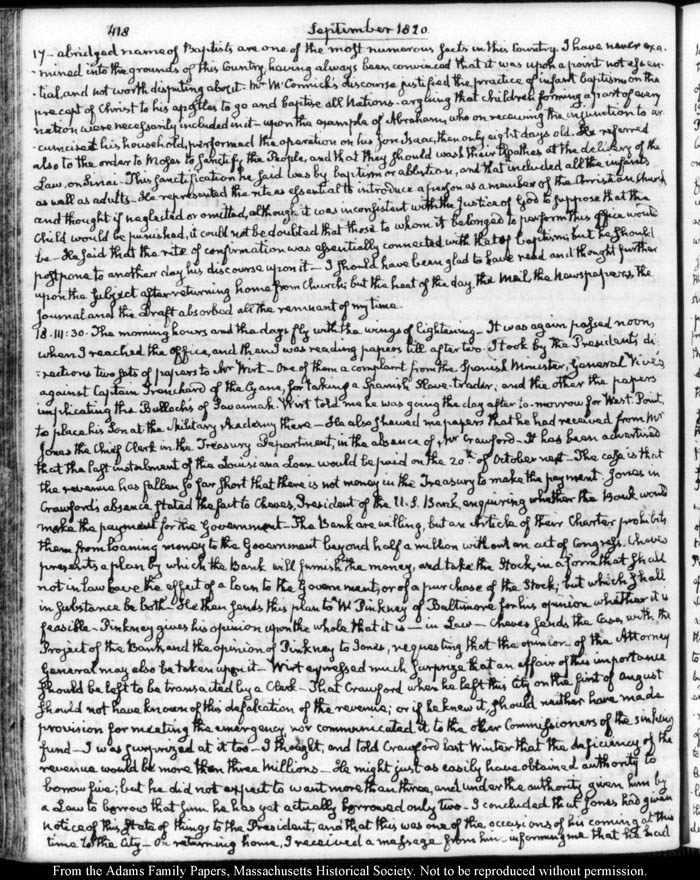 418 September 1820
17- abridged name of Baptists are one of the most numerous sects in this Country. I have never exa-
-mined into the grounds of this Country, having always been convinced that it was upon a point not essen-
-tial, and not worth disputing about it. Mr McCormick's discourse justified the practice of infant baptism on the
precept of Christ to his apostles to go and baptise all Nations - arguing that children forming a part of every
nation were necessarily included in it - upon the example of Abraham, who on receiving the injunction to cir-
-cumcise all his household, performed the operation on his Son Isaac, then only eight days old. He referred
also to the order to Moses to sanctify the People, and that they should wash their Clothes at the delivery of the
Law, on Sinai - This sanctification he said was by baptism or ablution, and that included all the infants
as well as adults - He represented the rite as essential to introduce a person as a member of the Christian Church
and thought if neglected or omitted, although it was inconsistent with the Justice of God to suppose that the
Child would be punished, it could not be doubted that those to whom it belonged to perform this office would
be - He said that the rite of confirmation was essentially connected with that of Baptism; but he should
postpone to another day his discourse upon it - I should have been glad to have read and thought further
upon the subject after returning home from Church; but the heat of the day, the Mail, the Newspapers, the
Journal and the Draft absorbed all the remnant of my time.
18. III:30. The morning hours and the days fly with the wings of lightening - It was again passed noon,
when I reached the Office, and then I was reading papers till after two. I took by the President's di-
-rections two sets of papers to Mr Wirt - One of them a complaint from the Spanish Minister, General Vives
against Captain Trenchard of the Cyane, for taking a Spanish Slave-trader; and the other the papers
implicating the Bullochs of Savannah. Wirt told me he was going the day after to-morrow for West-Point,
to place his Son at the Military Academy there - He also shewed me papers that he had received from Mr
Jones the Chief Clerk in the Treasury Department, in the absence of Mr Crawford - It has been advertised
that the last instalment of the Louisiana Loan would be paid on the 20th of October next - The case is that
the revenue has fallen so far short that there is not money in the Treasury to make the payment. Jones in
Crawford's absence stated the fact to Cheves, President of the U.S. Bank, enquiring whether the Bank would
make the payment for the Government - The Bank are willing, but an Article of their Charter prohibits
them from loaning money to the Government beyond half a million without an act of Congress. Cheves
presents a plan by which the Bank will furnish the money, and take the Stock, in a form that shall
not in law have the effect of a loan to the Government, or of a purchase of the Stock; but which shall
in substance be both - He then sends this plan to W Pinkney of Baltimore for his opinion whether it is
feasible - Pinkney gives his opinion upon the whole that it is - in Law - Cheves sends the Case, with the
Project of the Bank and the opinion of Pinkney to Jones, requesting that the opinion of the Attorney
General may also be taken upon it - Wirt expressed much surprize that an affair of this importance
should be left to be transacted by a Clerk - That Crawford when he left this City on the first of August
should not have known of this defalcation of the revenue; or if he knew it, should neither have made
provision for meeting the emergency, nor communicated it to the other Commissioners of the sinking
fund - I was surprized at it too - I thought, and told Crawford last Winter that the deficiency of the
revenue would be more than three Millions - He might just as easily have obtained authority to
borrow five; but he did not expect to want more than three, and under the authority given him by
a Law to borrow that sum he has yet actually borrowed only two - I concluded that Jones had given
notice of this state of things to the President, and that this was one of the occasions of his coming at this
time to the City - On returning home, I received a message from him informing me that he had
From the Adams Family Papers, Massachusetts Historical Society. Not to be reproduced without permission.